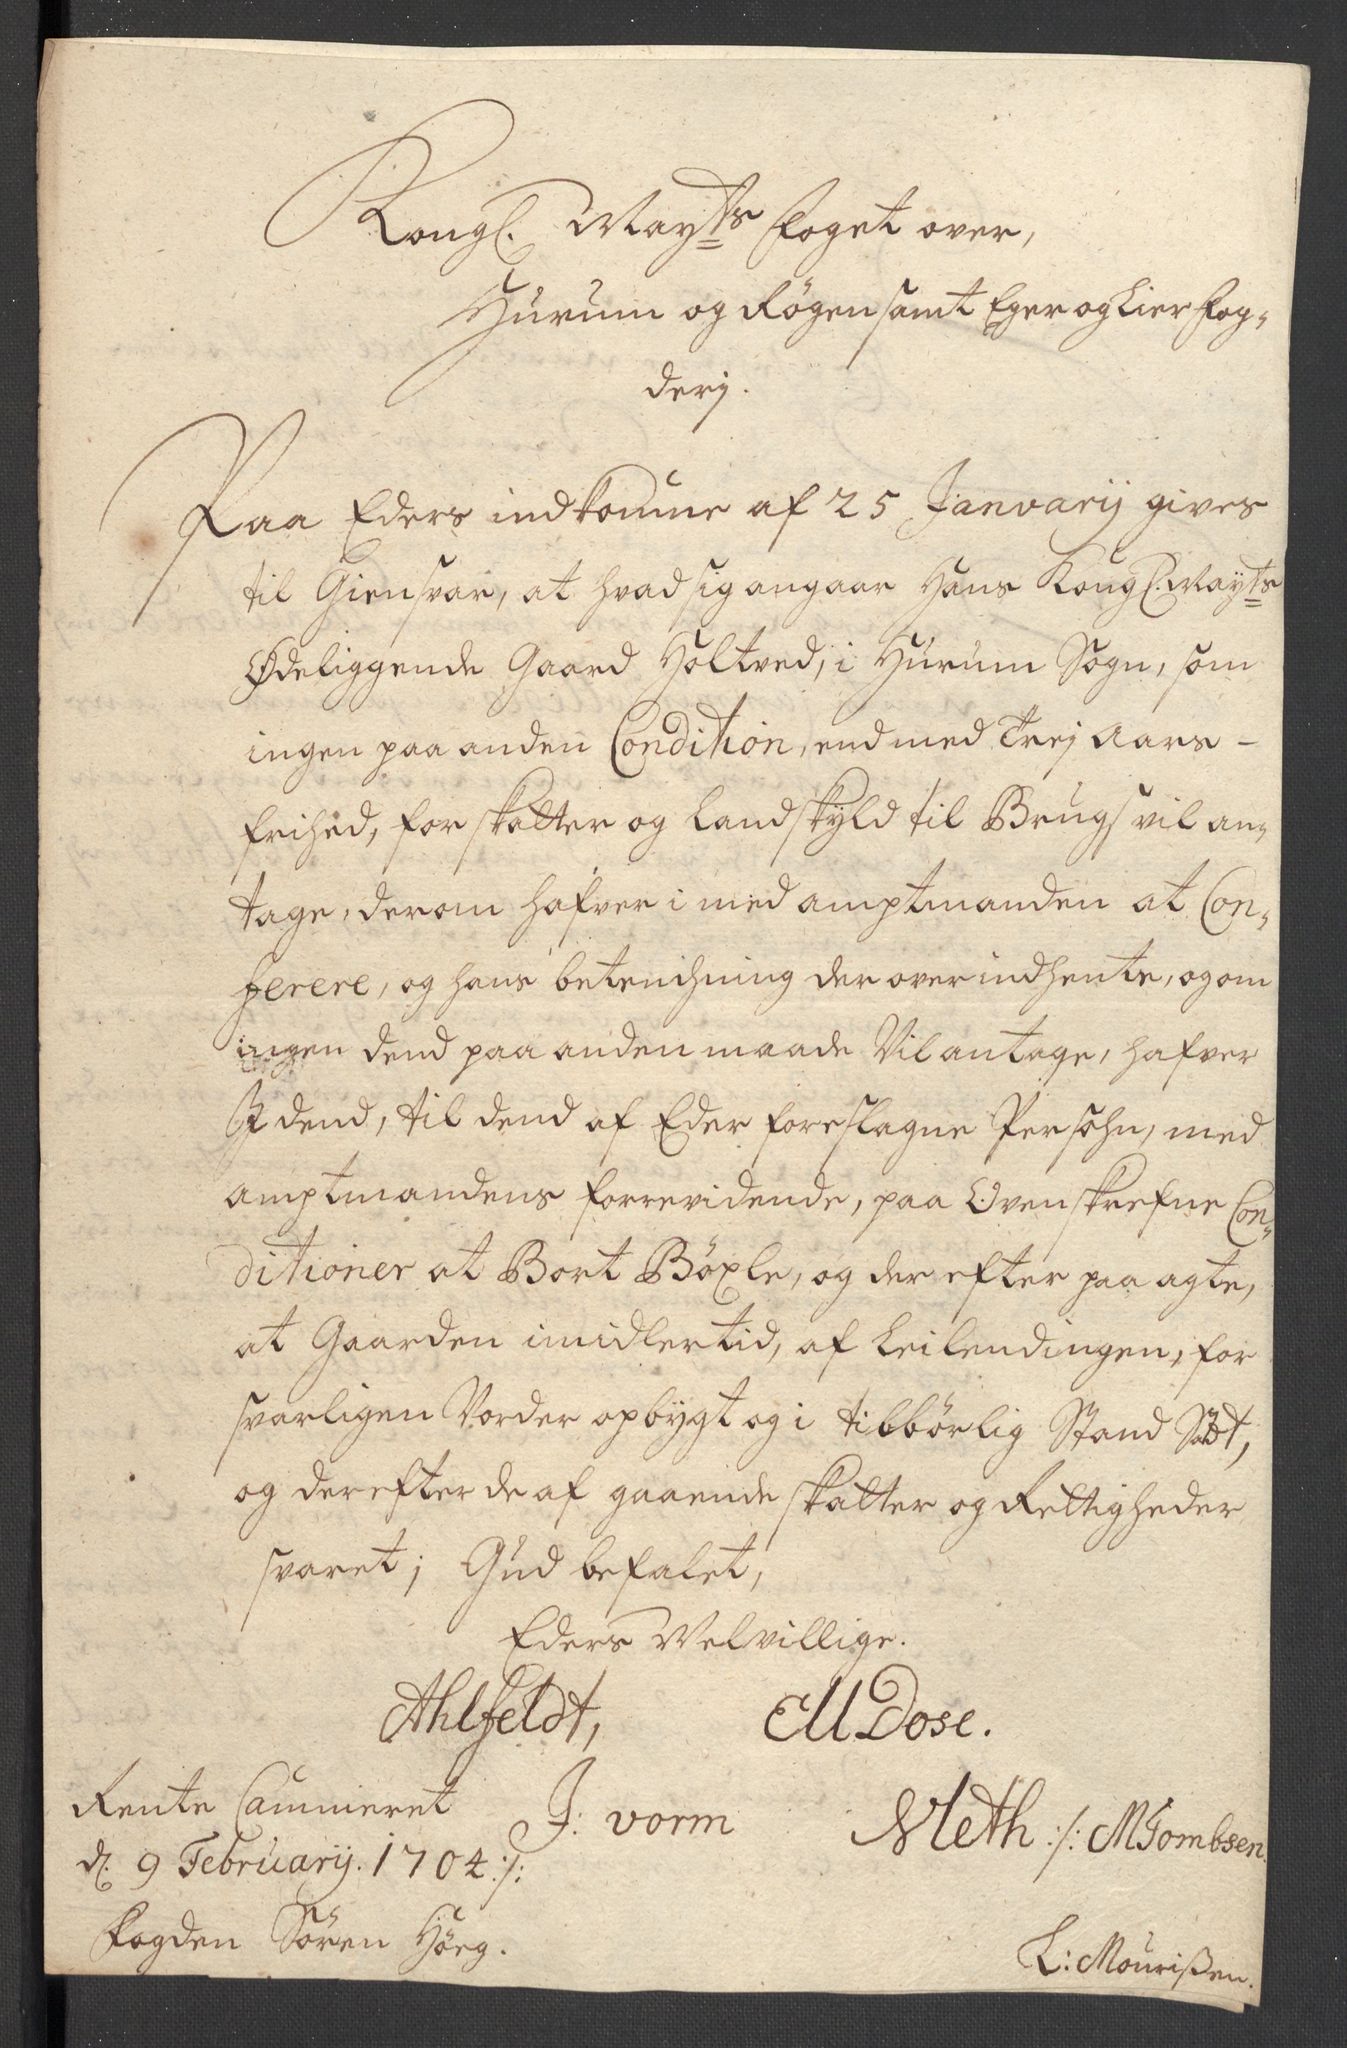 Kongl. Mayts Foget over,
Hurum og Røgen samt Eger og Lier Fog-
derj.
Paa Eders indkomne af 25 Janvarij gives
til Giensvar, at hvad sig angaar Hans Kongl. Mayts
Ødeliggende Gaard Holtved, i Hurum Sogn, som
ingen paa anden Condition, end med Trej Aars-
frihed, for skatter og Landskyld til Brugs vil an-
tage, derom hafver i med amptmanden at Con-
ferere, og hans betenchning der over indhente, og om
ingen dend paa anden maade Vil antage, hafver
I dend, til dend af Eder foreslagne Persohn, med
amptmandens forrevidende, paa Ovenskrefne Con-
ditioner at Bort Böxle, og der efter paa agte,
at Gaarden imidlertid, af Leilendingen, for
svarligen Vorder opbygt og i tilbörlig Stand Sadt,
og derefter de af gaaende skatter og Rettigheder
svaret; Gud befalet,
Eders Velvillige.
Ahlfeldt, CU Dose.
Rente Cammeret J: vorm Meth :/: M Tombsen.
d. 9 Februarij. 1704 :/:
Fogden Sören Höeg.
L: Mourißen.